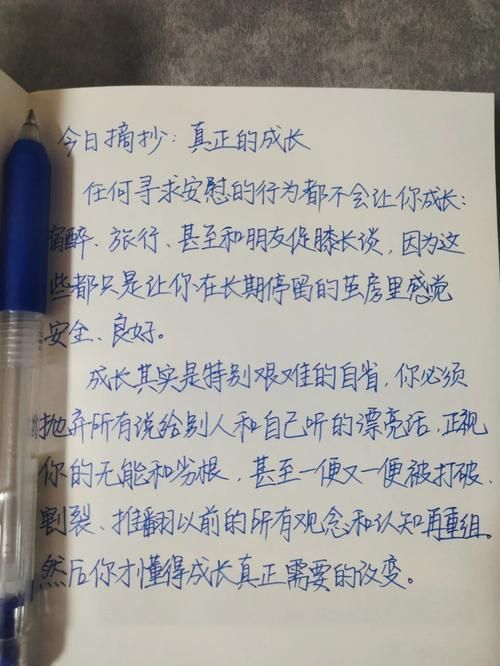 今日摘抄：真正的成长
任何寻求安慰的行为都不会让你成长：
宿醉、旅行、甚至和朋友促膝长谈，因为这
些都只是让你在长期停留的茧房里感觉
安全、良好。
成长其实是特别艰难的自省，你必须
抛弃所有说给别人和自己听的漂亮话，正视
你的无能和劣根，甚至一便又一便被打破、
割裂、推翻以前的所有观念和认知再重组。
然后你才懂得成长真正需要的改变。